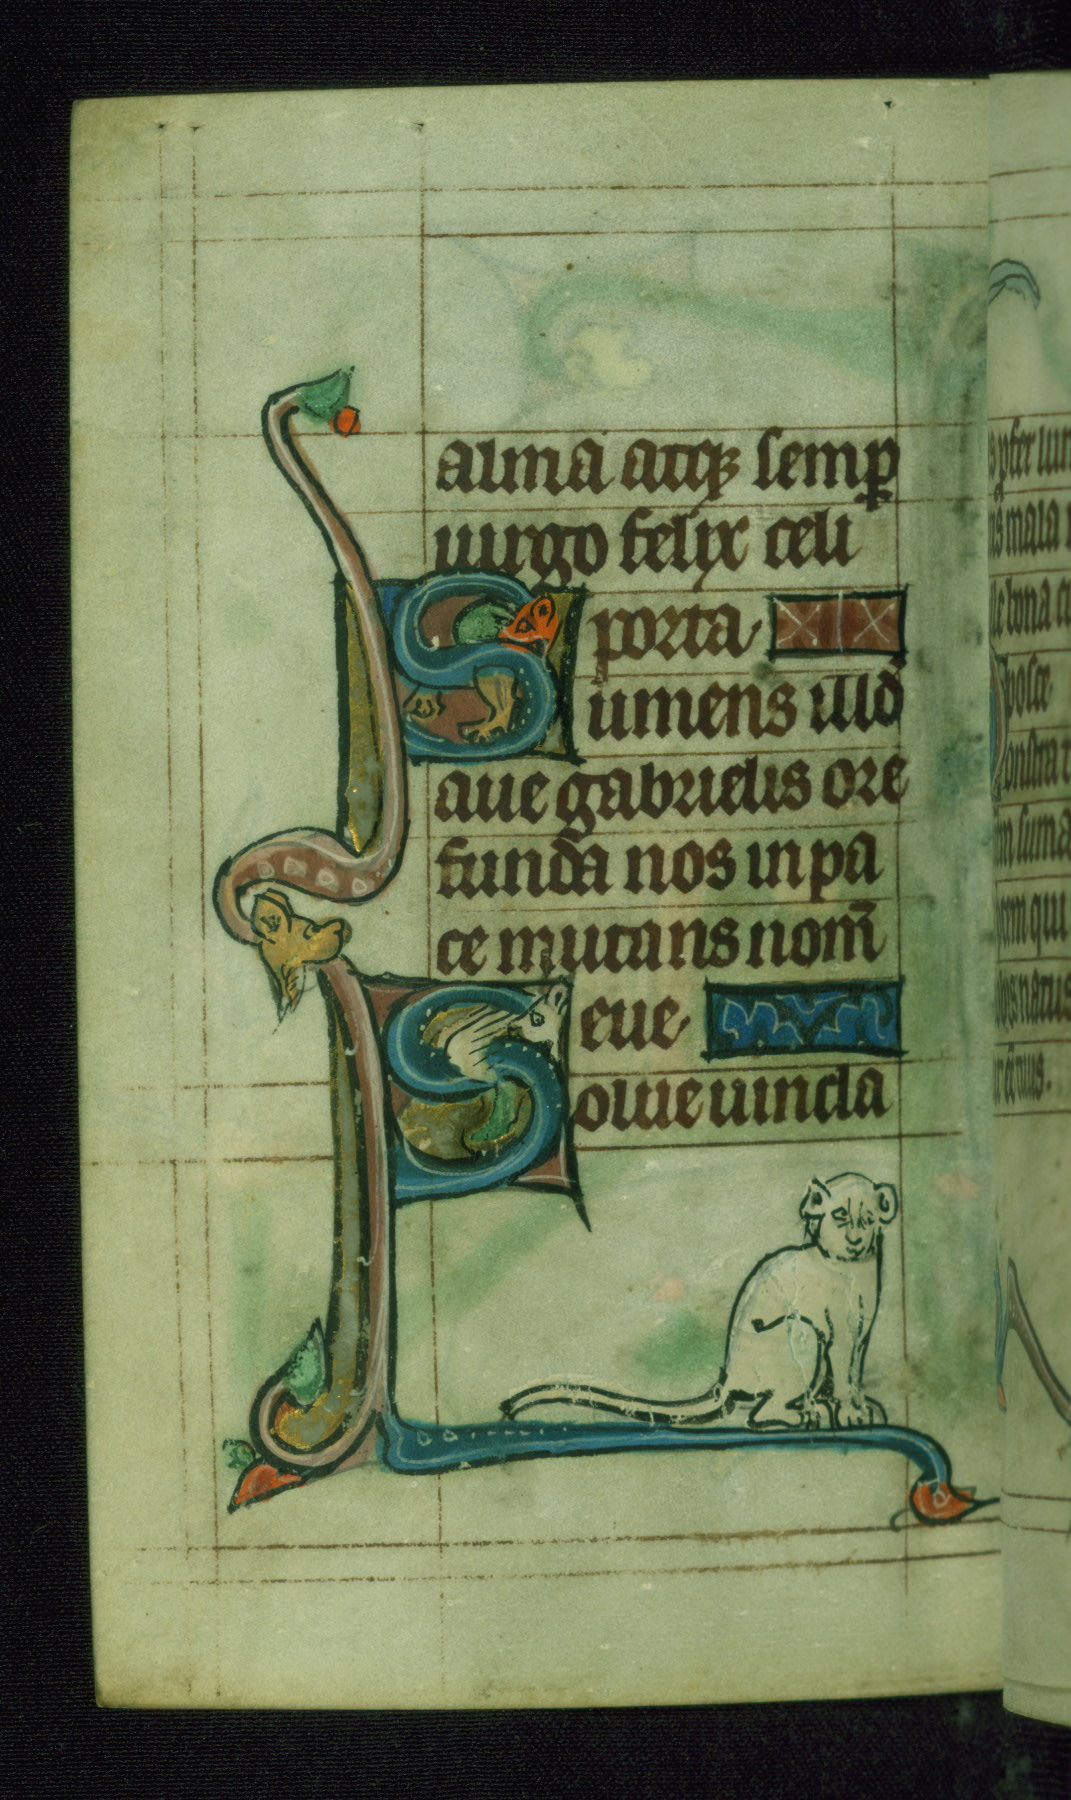 alma atq; semp
uirgo felix celi
porta
Sumens illd
aue gabrielis ore
funda nos in pa
ce mutans nom̄
eue
Solue uincla
s pfer lum
mala
le bona c
posce
onstra
m suma
rem qui
natus